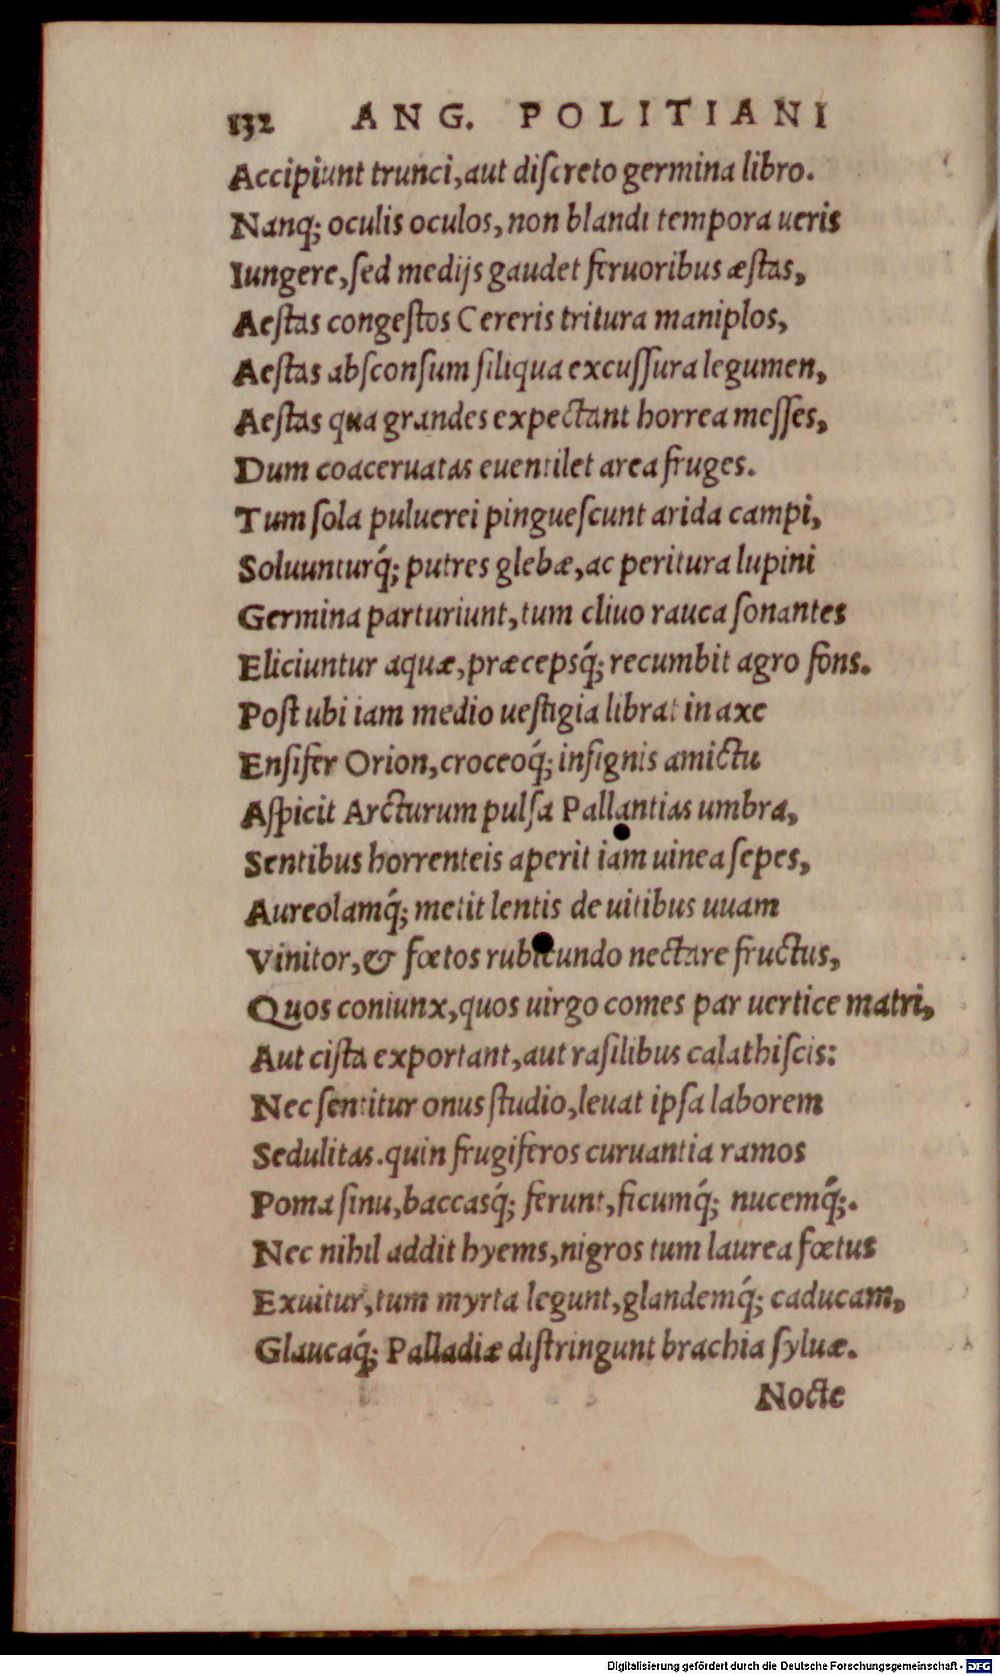 132 ANG. POLITIANI
Accipiunt trunci, aut diſcreto germina libro.
Nanq; oculis oculos, non blandi tempora ueris
Iungere, ſed medijs gaudet feruoribus æſtas,
Aeſtas congeſtos Cereris tritura maniplos,
Aeſtas abſconſum ſiliqua excuſſura legumen,
Aeſtas qua grandes expectant horrea meſſes,
Dum coaceruatas euentilet area fruges.
Tum ſola puluerei pingueſcunt arida campi,
Soluunturq́; putres glebæ, ac peritura lupini
Germina parturiunt, tum cliuo rauca ſonantes
Eliciuntur aquæ, præcepsq́; recumbit agro fons.
Poſt ubi iam medio ueſtigia librat in axe
Enſifer Orion, croceoq́; inſignis amictu
Aſpicit Arcturum pulſa Pallantias umbra,
Sentibus horrenteis aperit iam uinea ſepes,
Aureolamq́; metit lentis de uitibus uuam
Vinitor, & fœtos rubicundo nectare fructus,
Quos coniunx, quos uirgo comes par uertice matri,
Aut ciſta exportant, aut raſilibus calathiſcis:
Nec ſentitur onus ſtudio, leuat ipſa laborem
Sedulitas. quin frugiferos curuantia ramos
Poma ſinu, baccasq́; ferunt, ficumq́; nucemq́;.
Nec nihil addit hyems, nigros tum laurea fœtus
Exuitur, tum myrta legunt, glandemq́; caducam,
Glaucaq́; Palladiæ diſtringunt brachia ſyluæ.
Nocte
Digitalisierung gefördert durch die Deutsche Forschungsgemeinschaft - DFG